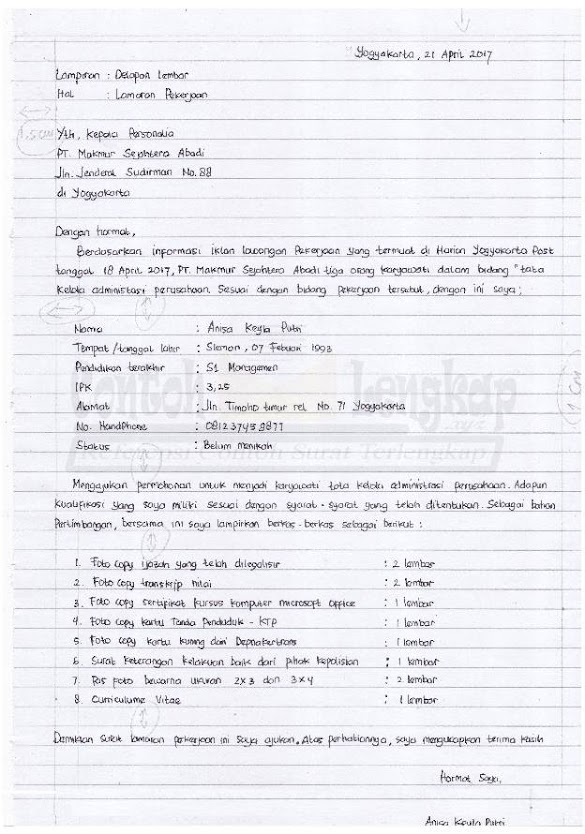 Yogyakarta, 21 April 2017
Lampiran : Delapan Lembar
Hal : Lamaran Pekerjaan
1,5 cm
Yth, Kepala Personalia
PT. Makmur Sejahtera Abadi
Jln. Jenderal Sudirman No. 88
di Yogyakarta
Dengan hormat,
Berdasarkan informasi iklan lowongan Pekerjaan yang termuat di Harian Yogyakarta Post
tanggal 18 April 2017, PT. Makmur Sejahtera Abadi tiga orang karyawati dalam bidang "tata
kelola administasi perusahaan. Sesuai dengan bidang pekerjaan tersebut, dengan ini saya;
Nama : Anisa Keyla Putri
Tempat/tanggal lahir : Sleman, 07 Febuari 1993
Pendidikan terakhir : S1 Managemen
IPK : 3,25
Alamat : Jln. Timoho timur rel No. 71 Yogyakarta
No. Handphone : 081237459877
Status : Belum menikah
Contoh Lengkap
.xyz
Referensi Contoh Surat Terlengkap
1 cm
Menggajukan permohonan untuk menjadi karyawati tata kelola administrasi perusahaan. Adapun
kualifikasi yang saya miliki sesuai dengan syarat-syarat yang telah ditentukan. Sebagai bahan
Pertimbangan, bersama ini saya lampirkan berkas-berkas sebagai berikut :
1. Foto copy ijazah yang telah dilegalisir : 2 lembar
2. Foto copy transkrip nilai : 2 lembar
3. Foto copy sertipikat kursus komputer microsoft office : 1 lembar
4. Foto copy kartu Tanda Penduduk - KTP : 1 lembar
5. Foto copy kartu kuning dari Depnakertrans : 1 lembar
6. Surat keterangan kelakuan baik dari pihak kepolisian : 1 lembar
7. Pas foto bewarna ukuran 2x3 dan 3x4 : 2 lembar
8. Curiculume Vitae : 1 lembar
Demikian surat lamaran pekerjaan ini saya ajukan. Atas perhatiannya, saya mengucapkan terima kasih
Hormat Saya,
Anisa Keyla Putri